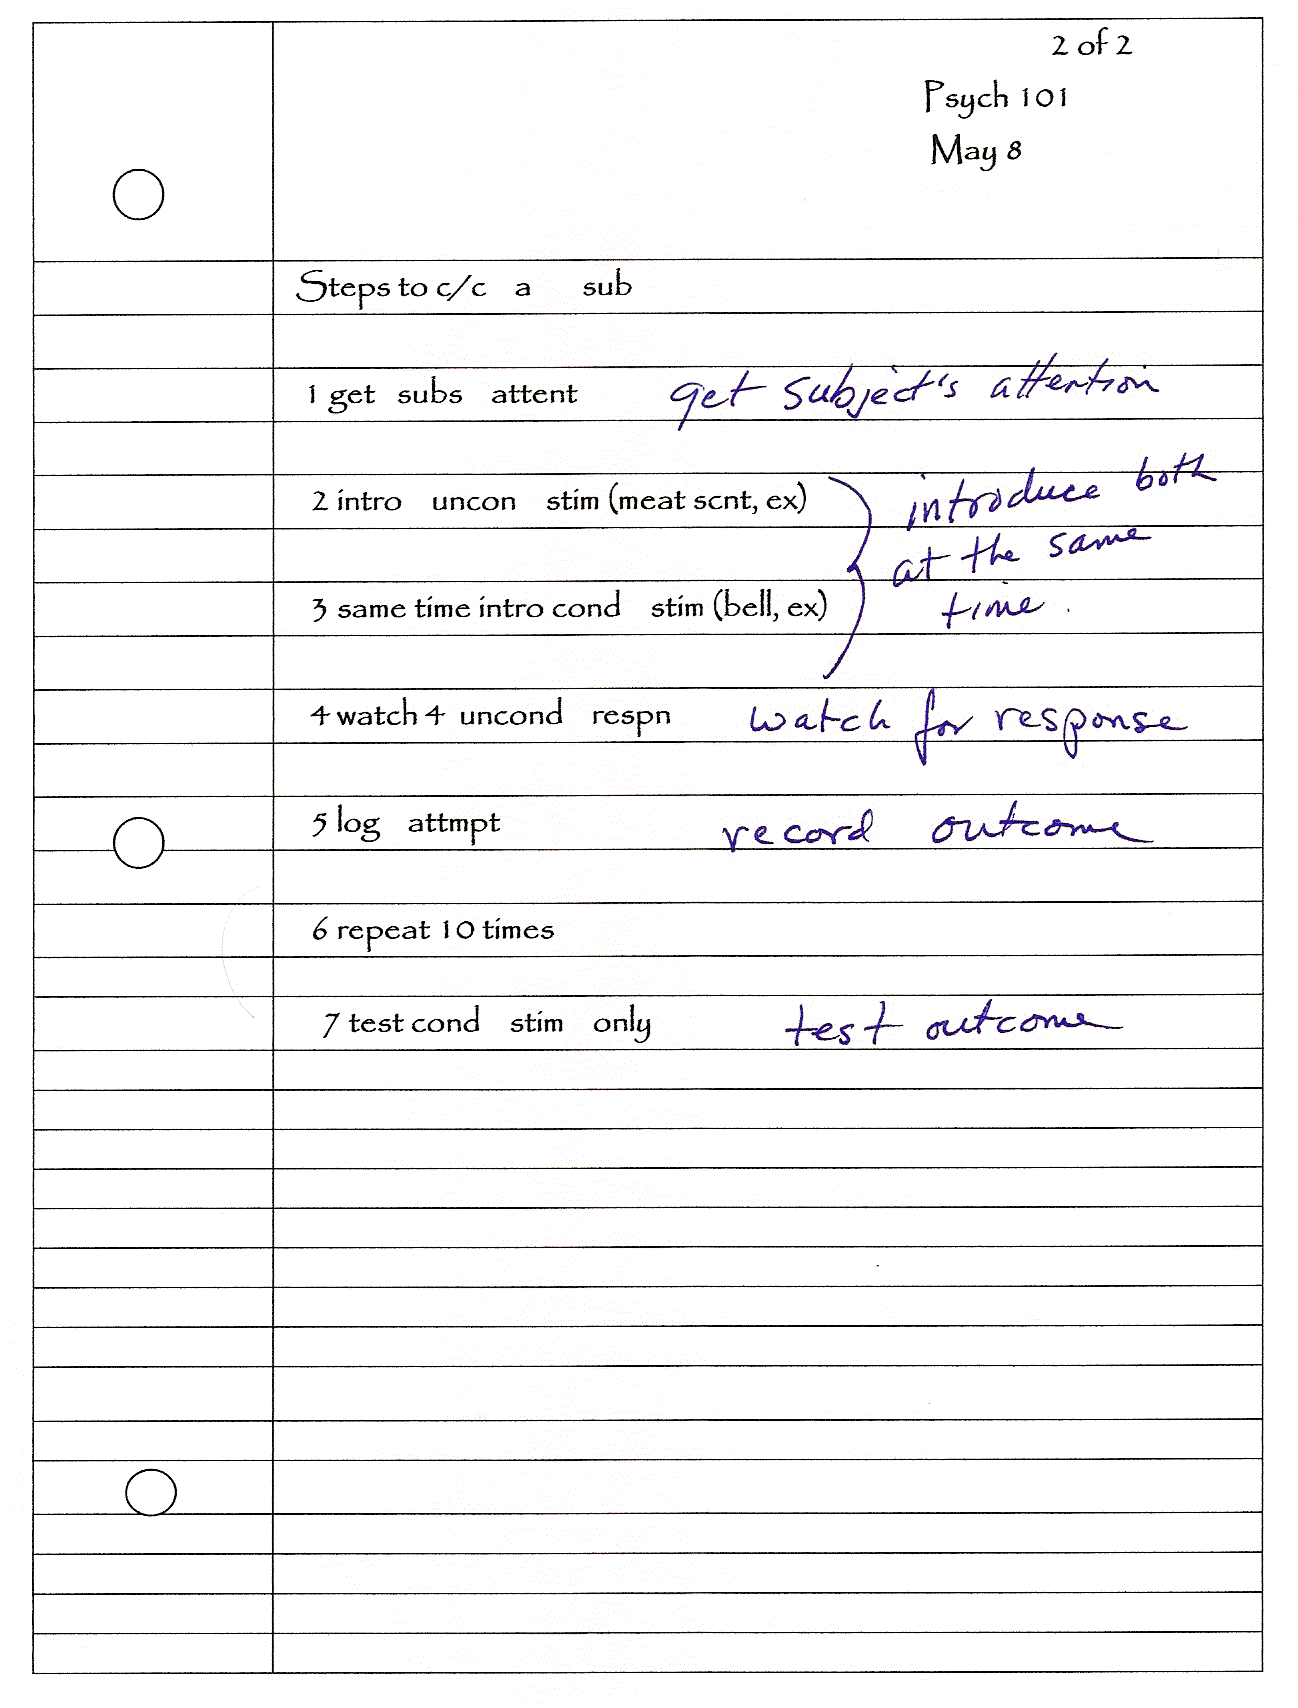 2 of 2
Psych 101
May 8
Steps to c/c a sub
1 get subs attent get subject's attention
2 intro uncon stim (meat scnt, ex) introduce both
at the same
3 same time intro cond stim (bell, ex) time.
4 watch 4 uncond respn watch for response
5 log attmpt record outcome
6 repeat 10 times
7 test cond stim only test outcome